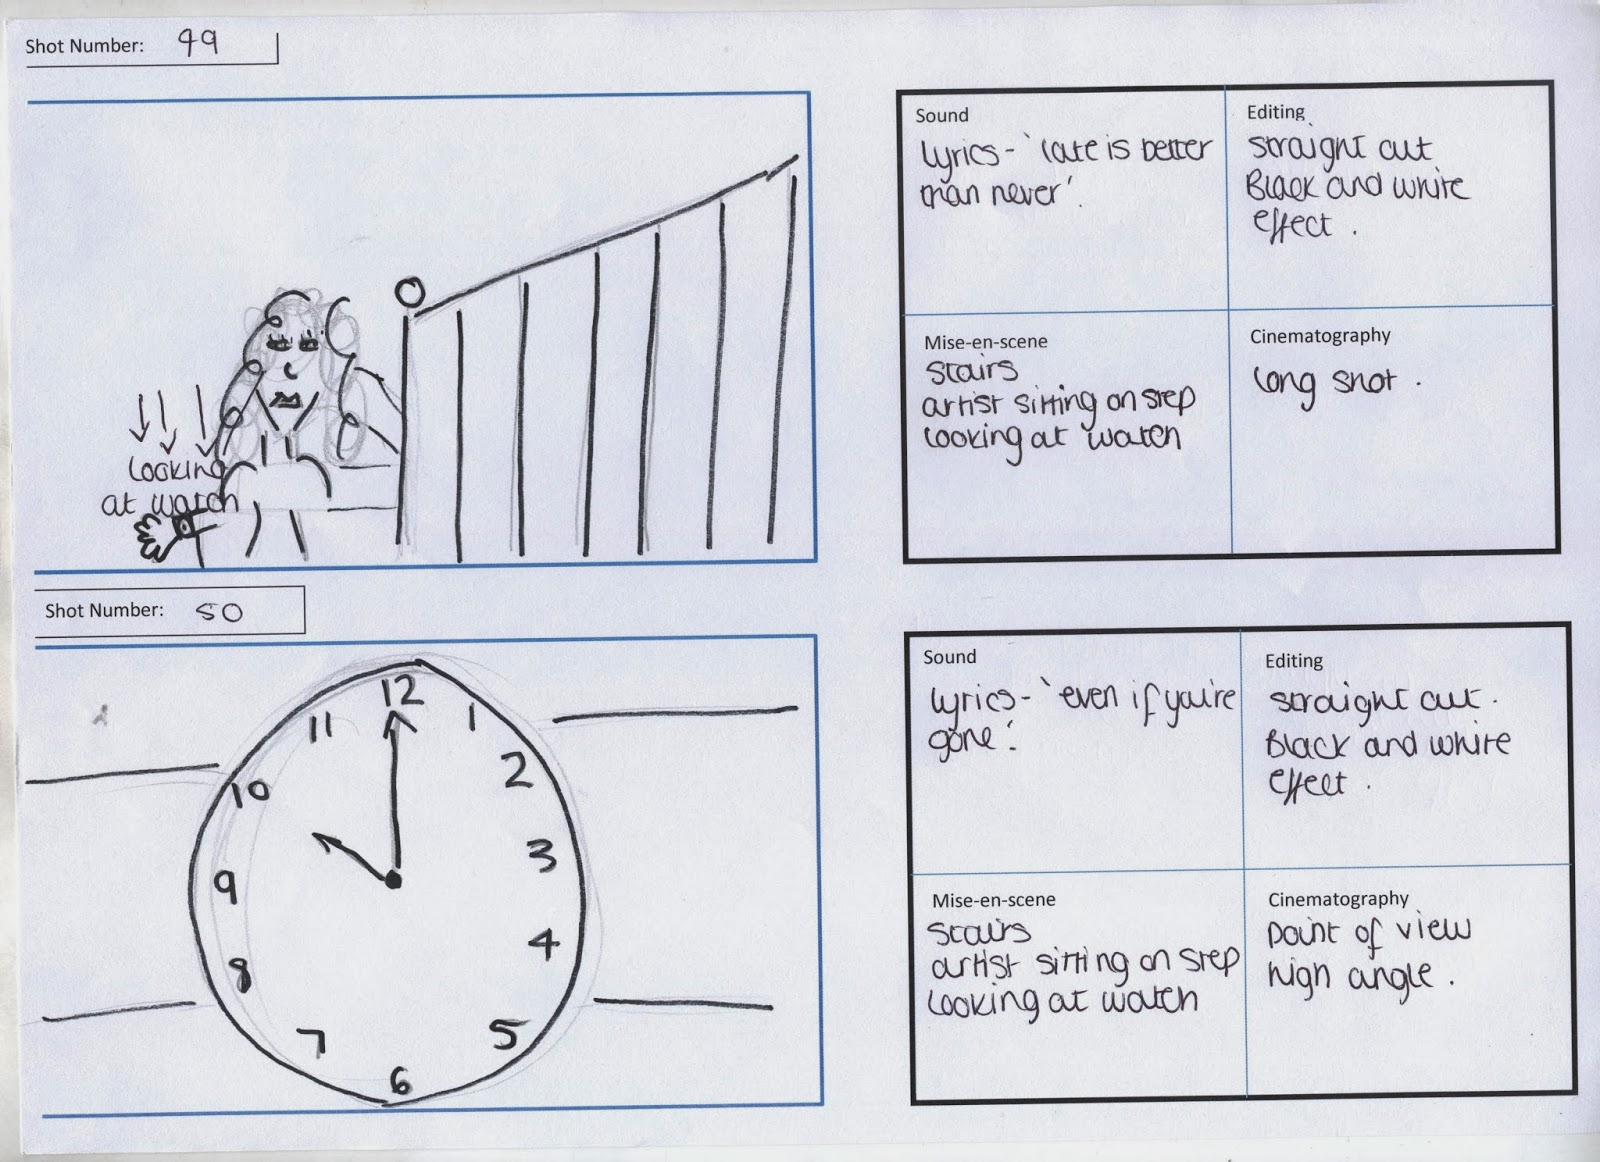 Shot Number: 49
Sound
Lyrics - 'late is better
than never'.
Editing
straight cut
Black and white
effect.
Mise-en-scene
stairs
artist sitting on step
looking at watch
Cinematography
long shot.
looking
at watch
Shot Number: 50
Sound
lyrics - 'even if you're
gone'.
Editing
straight cut.
Black and white
effect.
Mise-en-scene
stairs
artist sitting on step
looking at watch
Cinematography
Point of view
high angle.
12
11
1
10
2
9
3
8
4
7
5
6